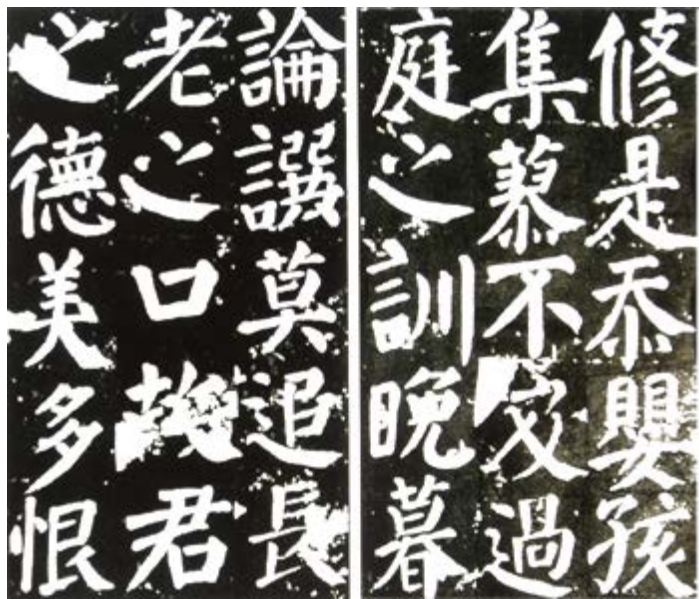 修是忝嬰孩
集蓼不及過
庭之訓晚暮
論譔莫追長
老之口故君
之德美多恨